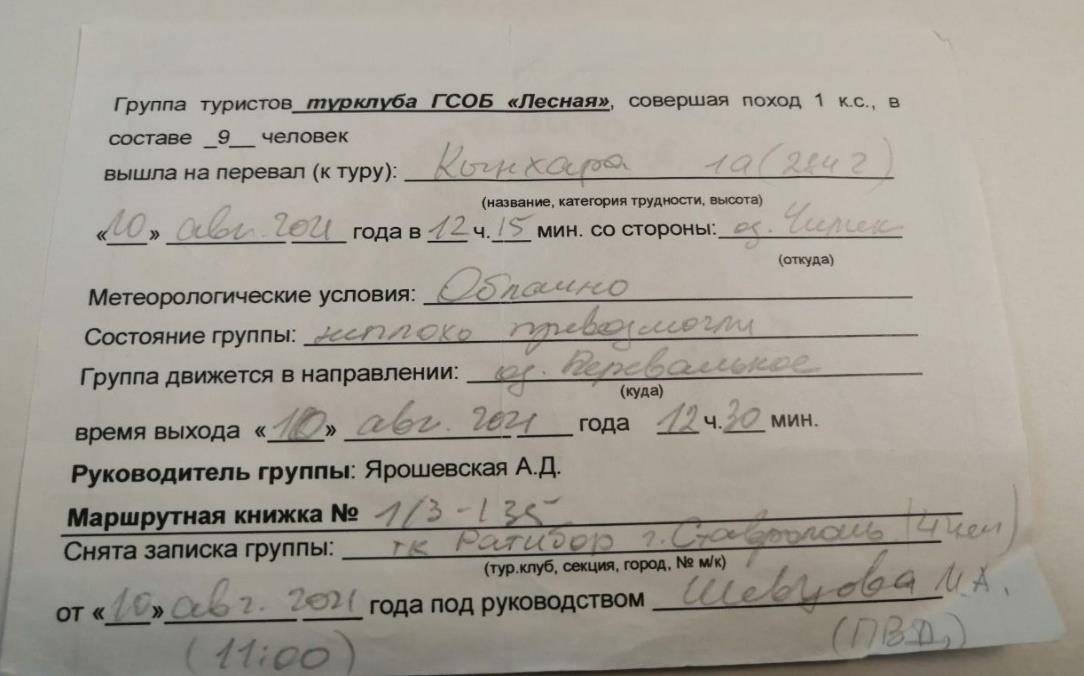 Группа туристов турклуба ГСОБ «Лесная», совершая поход 1 к.с., в
составе _9__ человек
вышла на перевал (к туру): Кынхара 1а
(название, категория трудности, высота)
«10» авг. 2021 года в 12 ч. 15 мин. со стороны: оз.
(откуда)
Метеорологические условия: Облачно
Состояние группы: неплохо превозмогли
Группа движется в направлении: оз. Перевальное
(куда)
время выхода «10» авг. 2021 года 12 ч. 30 мин.
Руководитель группы: Ярошевская А.Д.
Маршрутная книжка № 1/3-135
Снята записка группы: тк Ратибор г. Ставрополь (4 чел)
(тур.клуб, секция, город, № м/к)
от «10» авг. 2021 года под руководством Шевцова И.А.
(11:00) (ПВД)